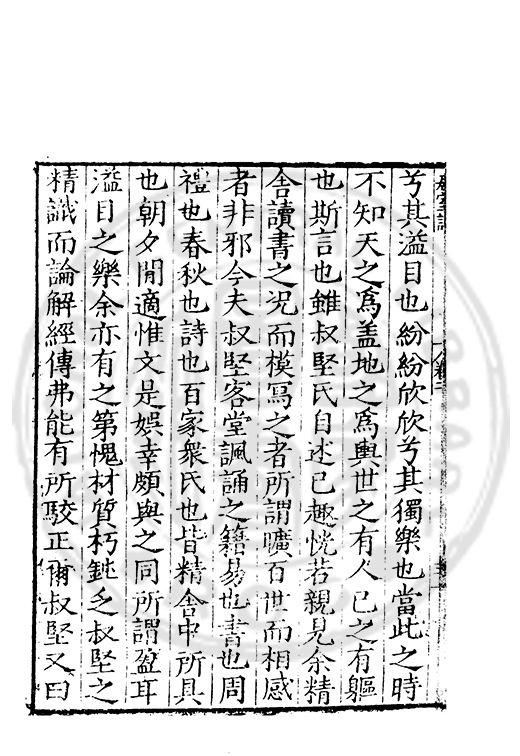 兮其溢目也紛紛欣欣兮其獨樂也當此之時
不知天之爲盖地之爲輿世之有人已之有軀
也斯言也雖叔堅氏自述已趣恍若親見余精
舍讀書之况而模寫之者所謂曠百世而相感
者非邪今夫叔堅客堂諷誦之籍易也書也周
禮也春秋也詩也百家衆氏也皆精舍中所具
也朝夕閒適惟文是娛幸頗與之同所謂盈耳
溢目之樂余亦有之第愧材質朽鈍乏叔堅之
精識而論解經傳弗能有所駮正爾叔堅又曰